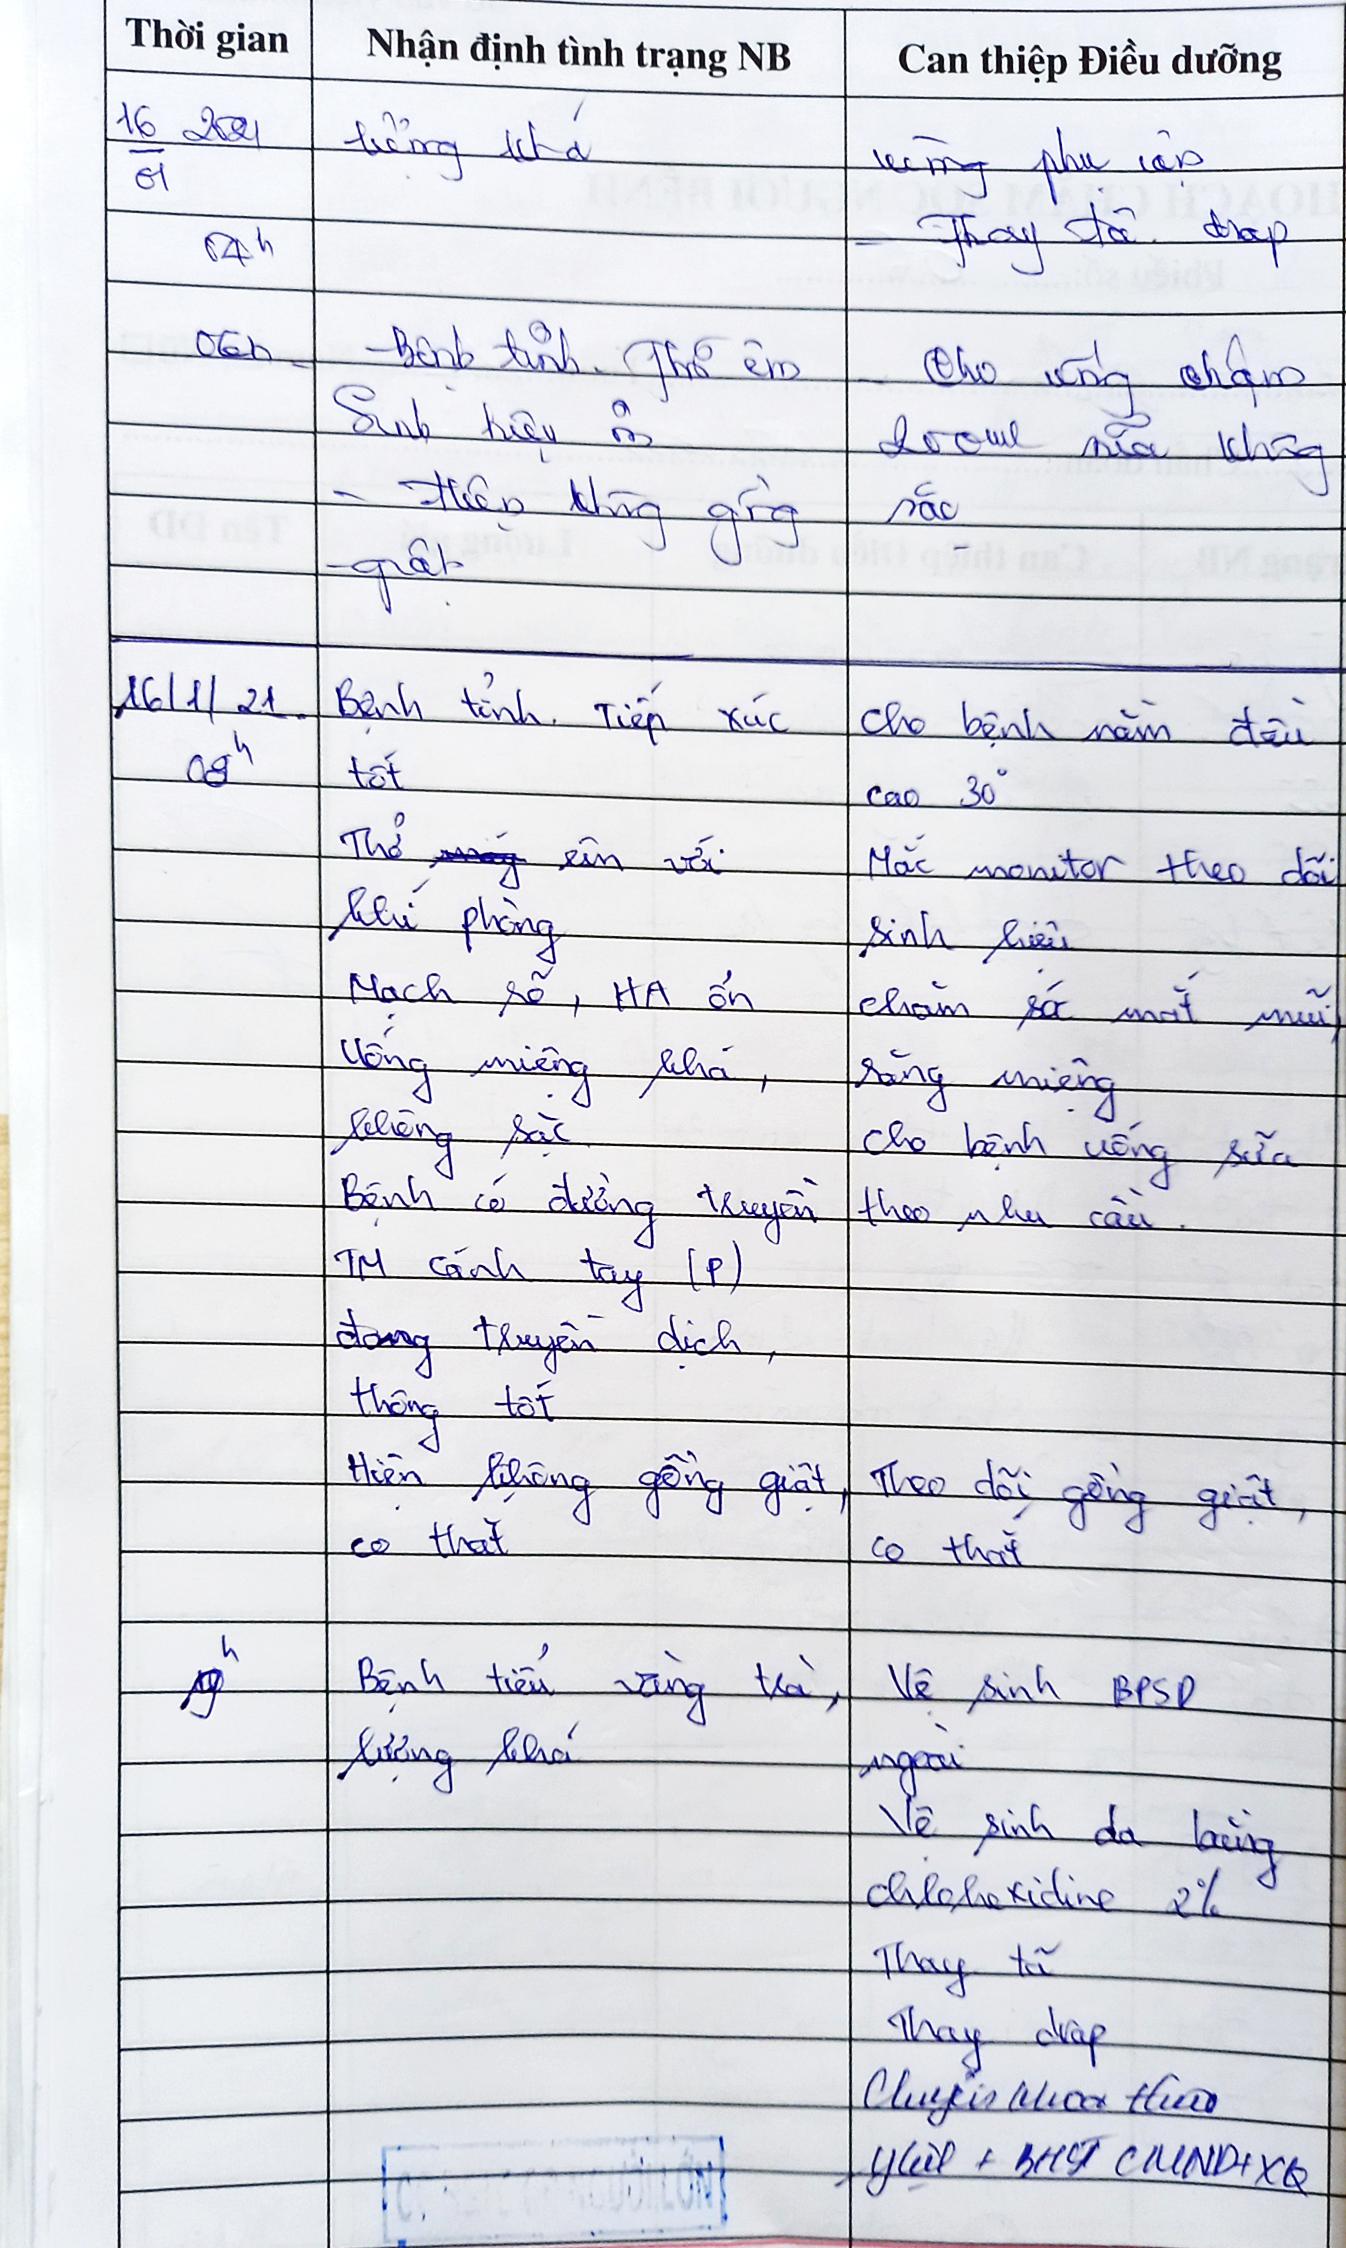 Thời gian
Nhận định tình trạng NB
Can thiệp Điều dưỡng
16 2021
01
lượng khá
vùng phụ cận
- Thay tã. drap
04h
06h
- Bệnh tỉnh. Thở êm
Sinh hiệu ổn
- Hiện không gồng
giật
Cho uống chậm
200ml sữa không
sặc
16/1/21.
08h
Bệnh tỉnh. Tiếp xúc
tốt
Thở êm với
khí phòng
Mạch rõ, HA ổn
Uống miệng khá,
không sặc.
Bệnh có đường truyền
TM cánh tay (P)
đang truyền dịch,
thông tốt
Hiện không gồng giật,
co thắt
Cho bệnh nằm đầu
cao 30°
Mắc monitor theo dõi
sinh hiệu
chăm sóc mắt mũi,
răng miệng
Cho bệnh uống sữa
theo nhu cầu.
Theo dõi gồng giật,
co thắt
9h
Bệnh tiểu vàng trà,
lượng khá
Vệ sinh BPSD
ngoài
Vệ sinh da bằng
chlohexidine 2%
Thay tã
Thay drap
Chuyển khoa theo
y lệnh + BHYT CMND+XQ